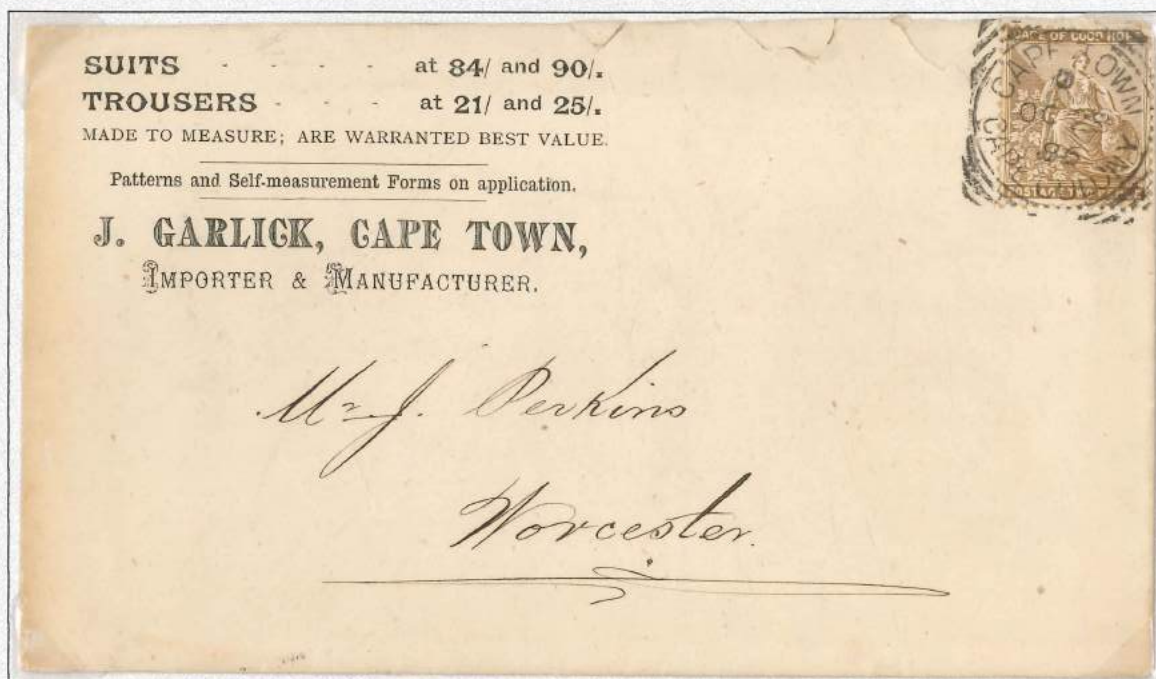 SUITS - - - - at 84/ and 90/.
TROUSERS - - - at 21/ and 25/.
MADE TO MEASURE; ARE WARRANTED BEST VALUE.
Patterns and Self-measurement Forms on application.
J. GARLICK, CAPE TOWN,
IMPORTER & MANUFACTURER.
CAPE OF GOOD HOPE
CAPE TOWN
OC
CAPE COLONY
Mr J. Perkins
Worcester.